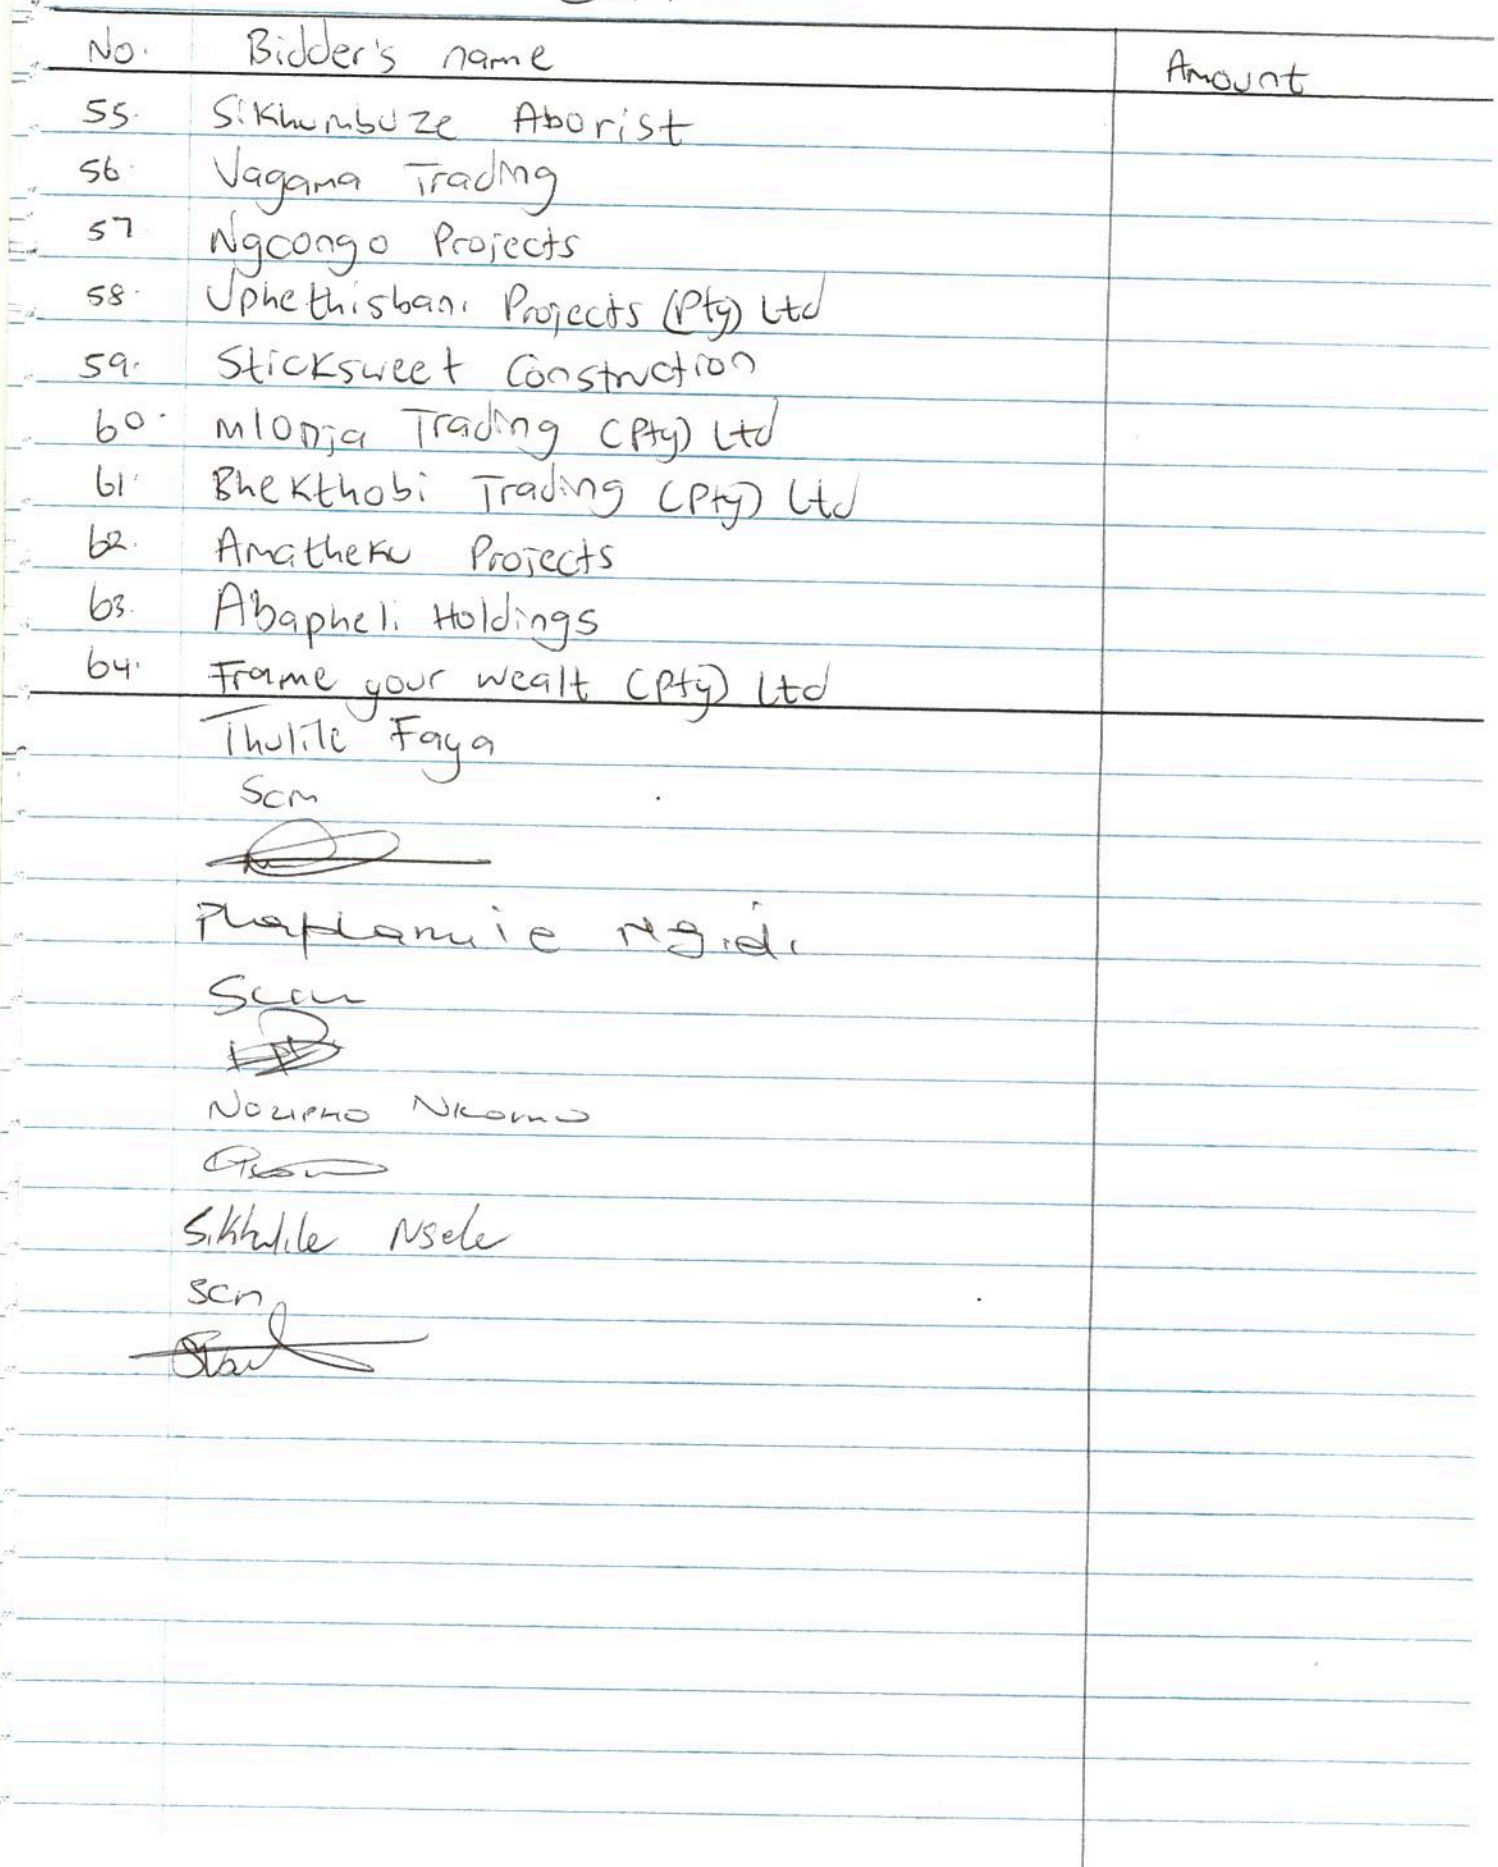 No. Bidder's name Amount
55. Sikhumbuze Aborist
56. Vagama Trading
57 Ngcongo Projects
58. Uphethisbani Projects (Pty) Ltd
59. Sticksweet Construction
60. Mlonja Trading (Pty) Ltd
61. Bhekthobi Trading (Pty) Ltd
62. Amatheku Projects
63. Abapheli Holdings
64. Frame your wealt (Pty) Ltd
Thulile Faya
Scm
Ngidi
Scm
Nozipho Nkomo
Sikhulile Nsele
Scm